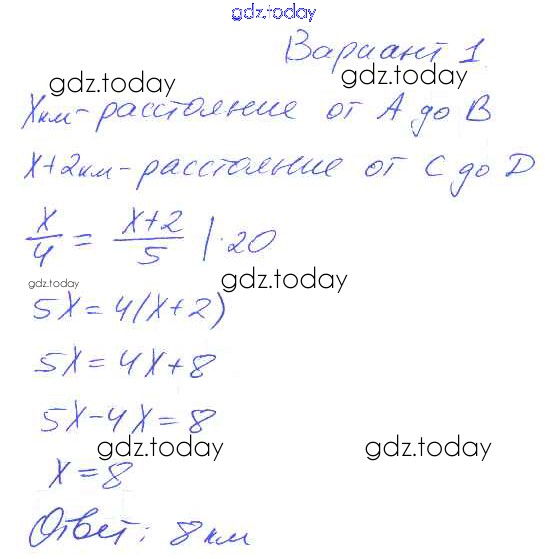 gdz.today
Вариант 1
gdz.today gdz.today
Xкм - расстояние от A до B
X+2км - расстояние от C до D
X/4 = X+2/5 |·20
gdz.today gdz.today
5X = 4(X+2)
5X = 4X+8
5X-4X=8
gdz.today gdz.today
X=8
Ответ: 8 км